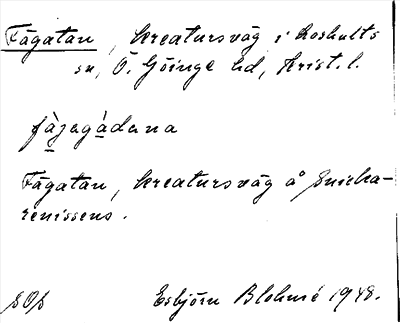 Fägatan, kreatursväg i Loshults
sn, Ö. Göinge hd, Krist. l.
fàjagádana
Fägatan, kreatursväg å Snicka-
renissens.
SOS Esbjörn Blohmé 1948.